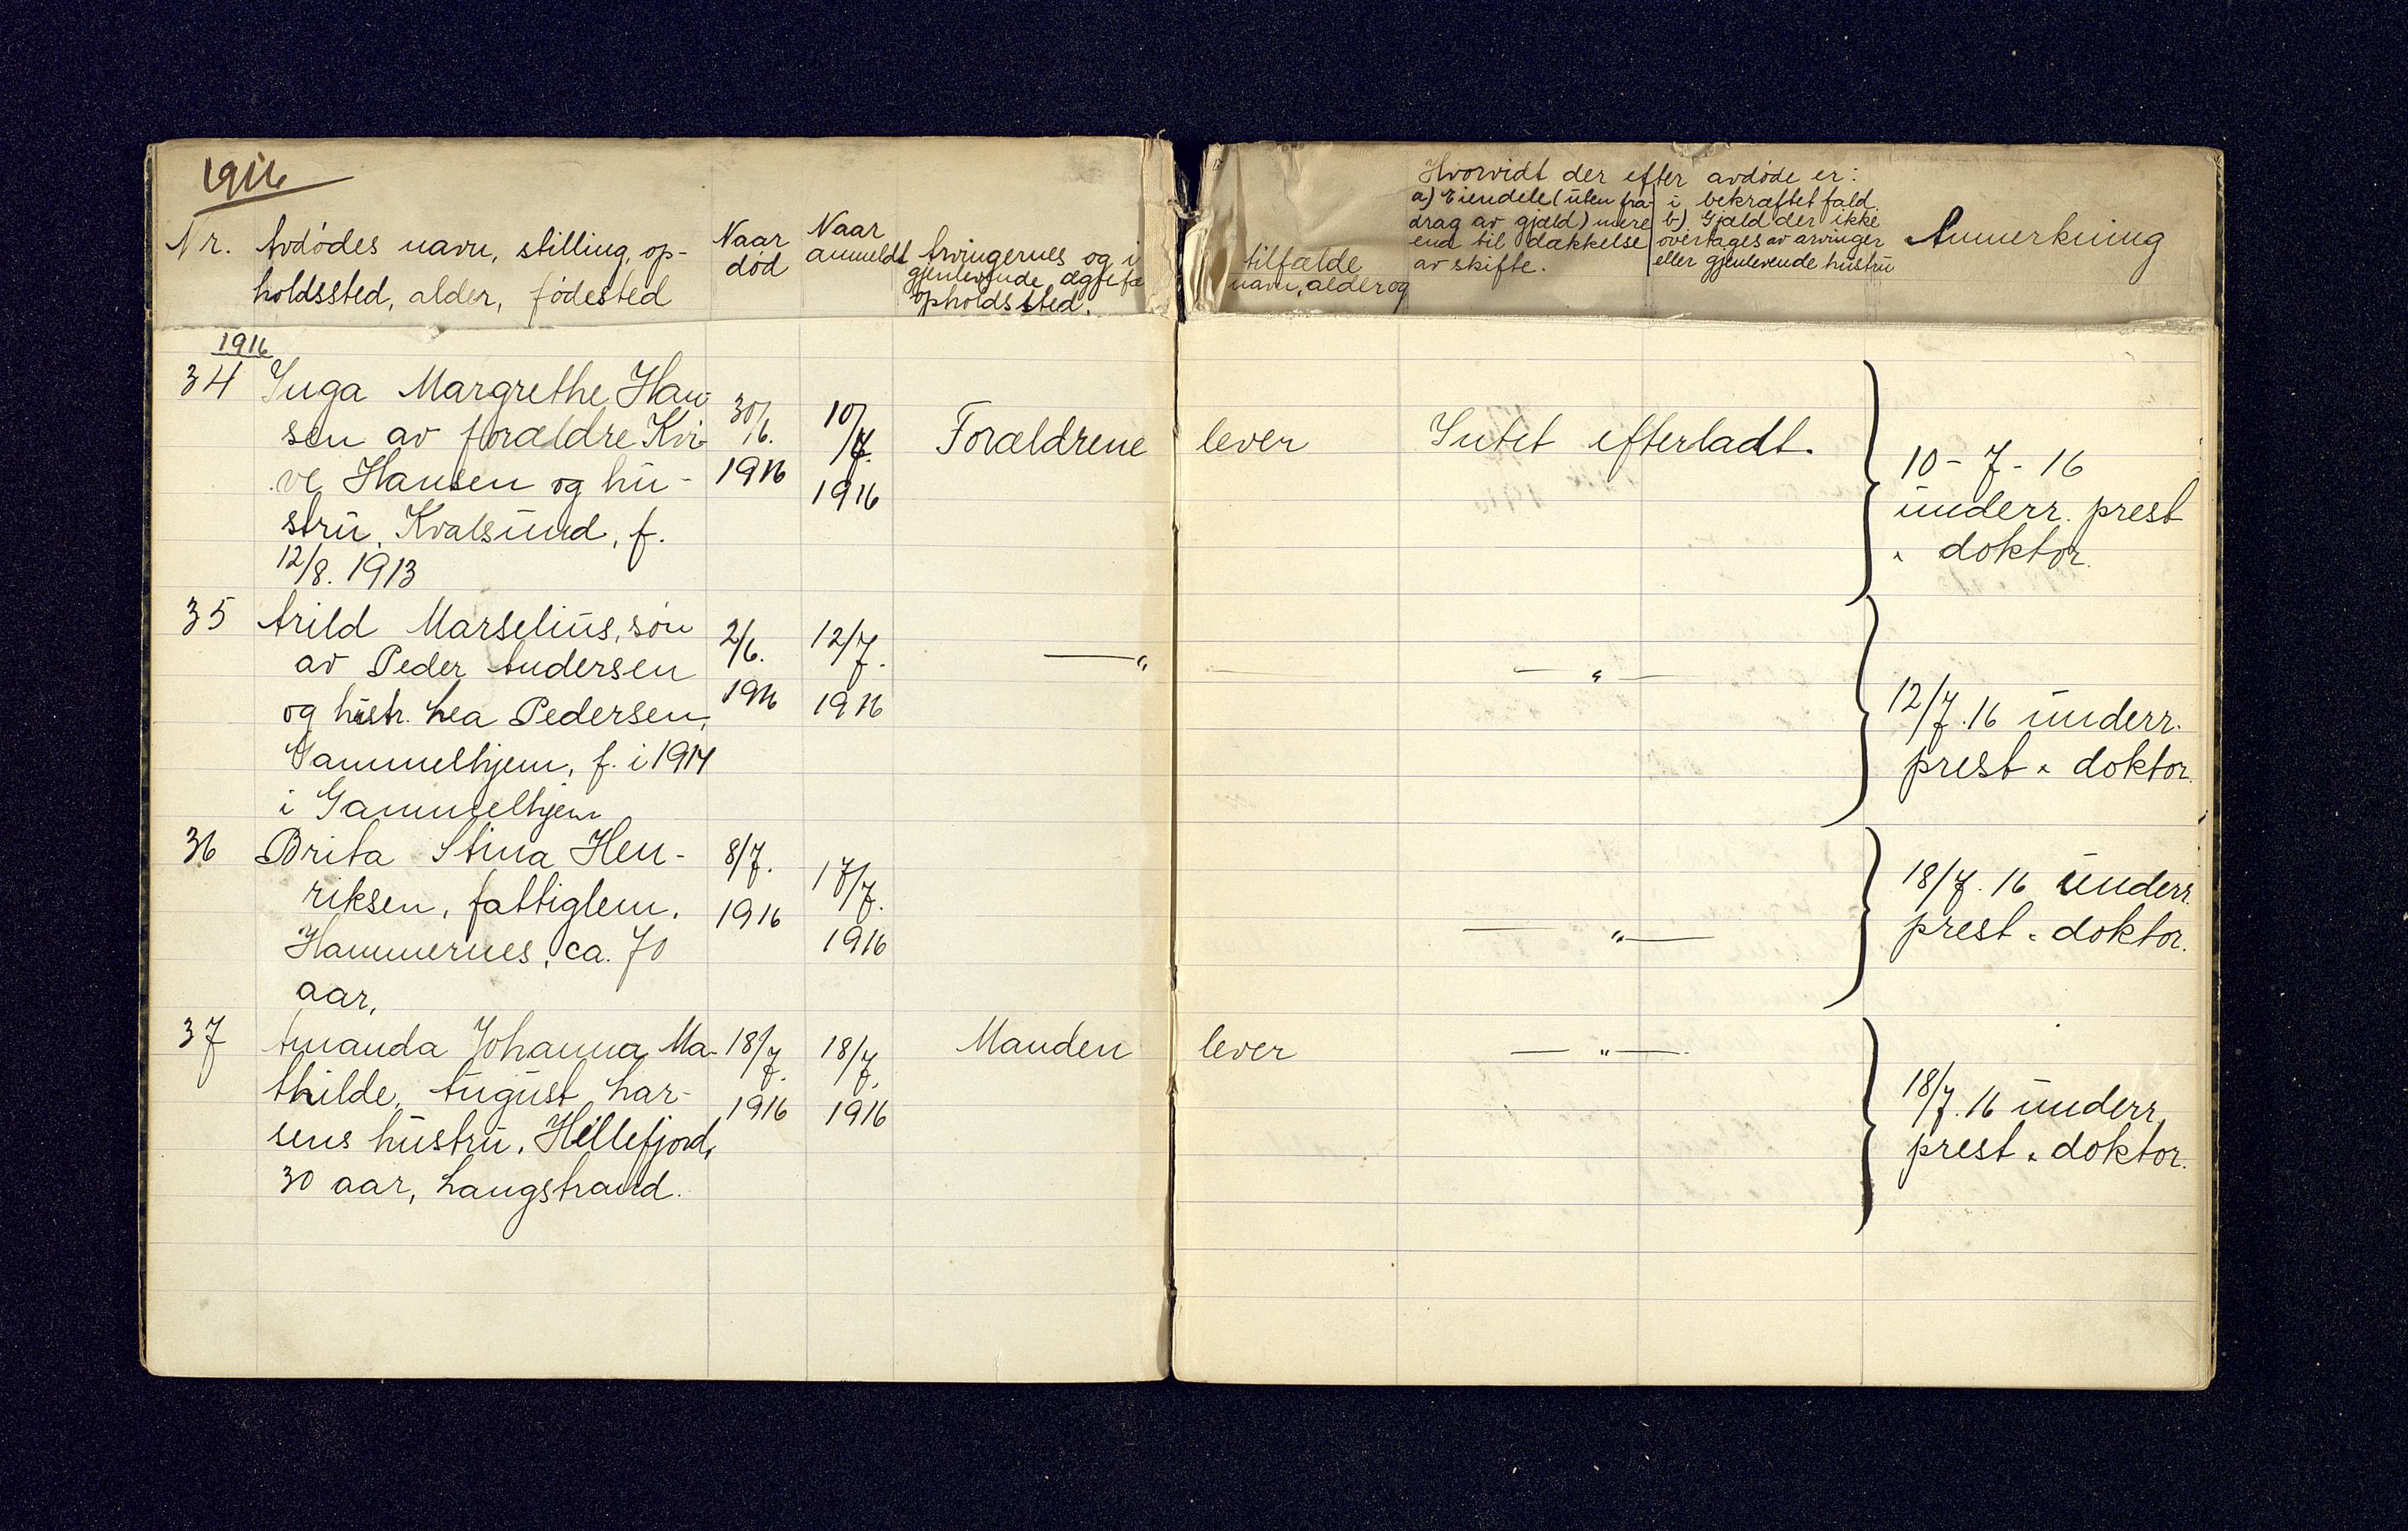 1916
Nr. Avdødes navn, stilling, op-
holdssted, alder, fødested
Naar
død
Naar
anmeldt
Arvingernes og i
gjenlevende ægtefæ
opholdssted.
tilfælde
navn, alder og
Hvorvidt der efter avdøde er:
a) Eiendele (uten fra-
drag av gjæld) mere
end til dækkelse
av skifte.
i bekræftet fald
b) Gjæld der ikke
overtages av arvinger
eller gjenlevende hustru
Anmerkning
1916
34 Inga Margrethe Han-
sen av forældre Kri-
ve Hansen og hu-
stru, Kvalsund, f.
12/8. 1913
30/6.
1916
10/7.
1916
Forældrene lever
Intet efterladt.
10-7-16
underr. prest
" doktor.
35 Arild Marselius, søn
av Peder Andersen
og hustr. Lea Pedersen,
Gammelhjem, f. i 1914
i Gammelhjem
2/6.
1916
12/7.
1916
— " —
— " —
12/7.16 underr.
prest " doktor.
36 Brita Stina Hen-
riksen, fattiglem,
Hammernes, ca. 70
aar,
8/7.
1916
17/7.
1916
— " —
18/7.16 underr.
prest " doktor.
37 Amanda Johanna Ma-
thilde, August Lar-
sens hustru, Hillefjord,
30 aar, Langstrand.
18/7.
1916
18/7.
1916
Manden lever
— " —
18/7.16 underr.
prest " doktor.